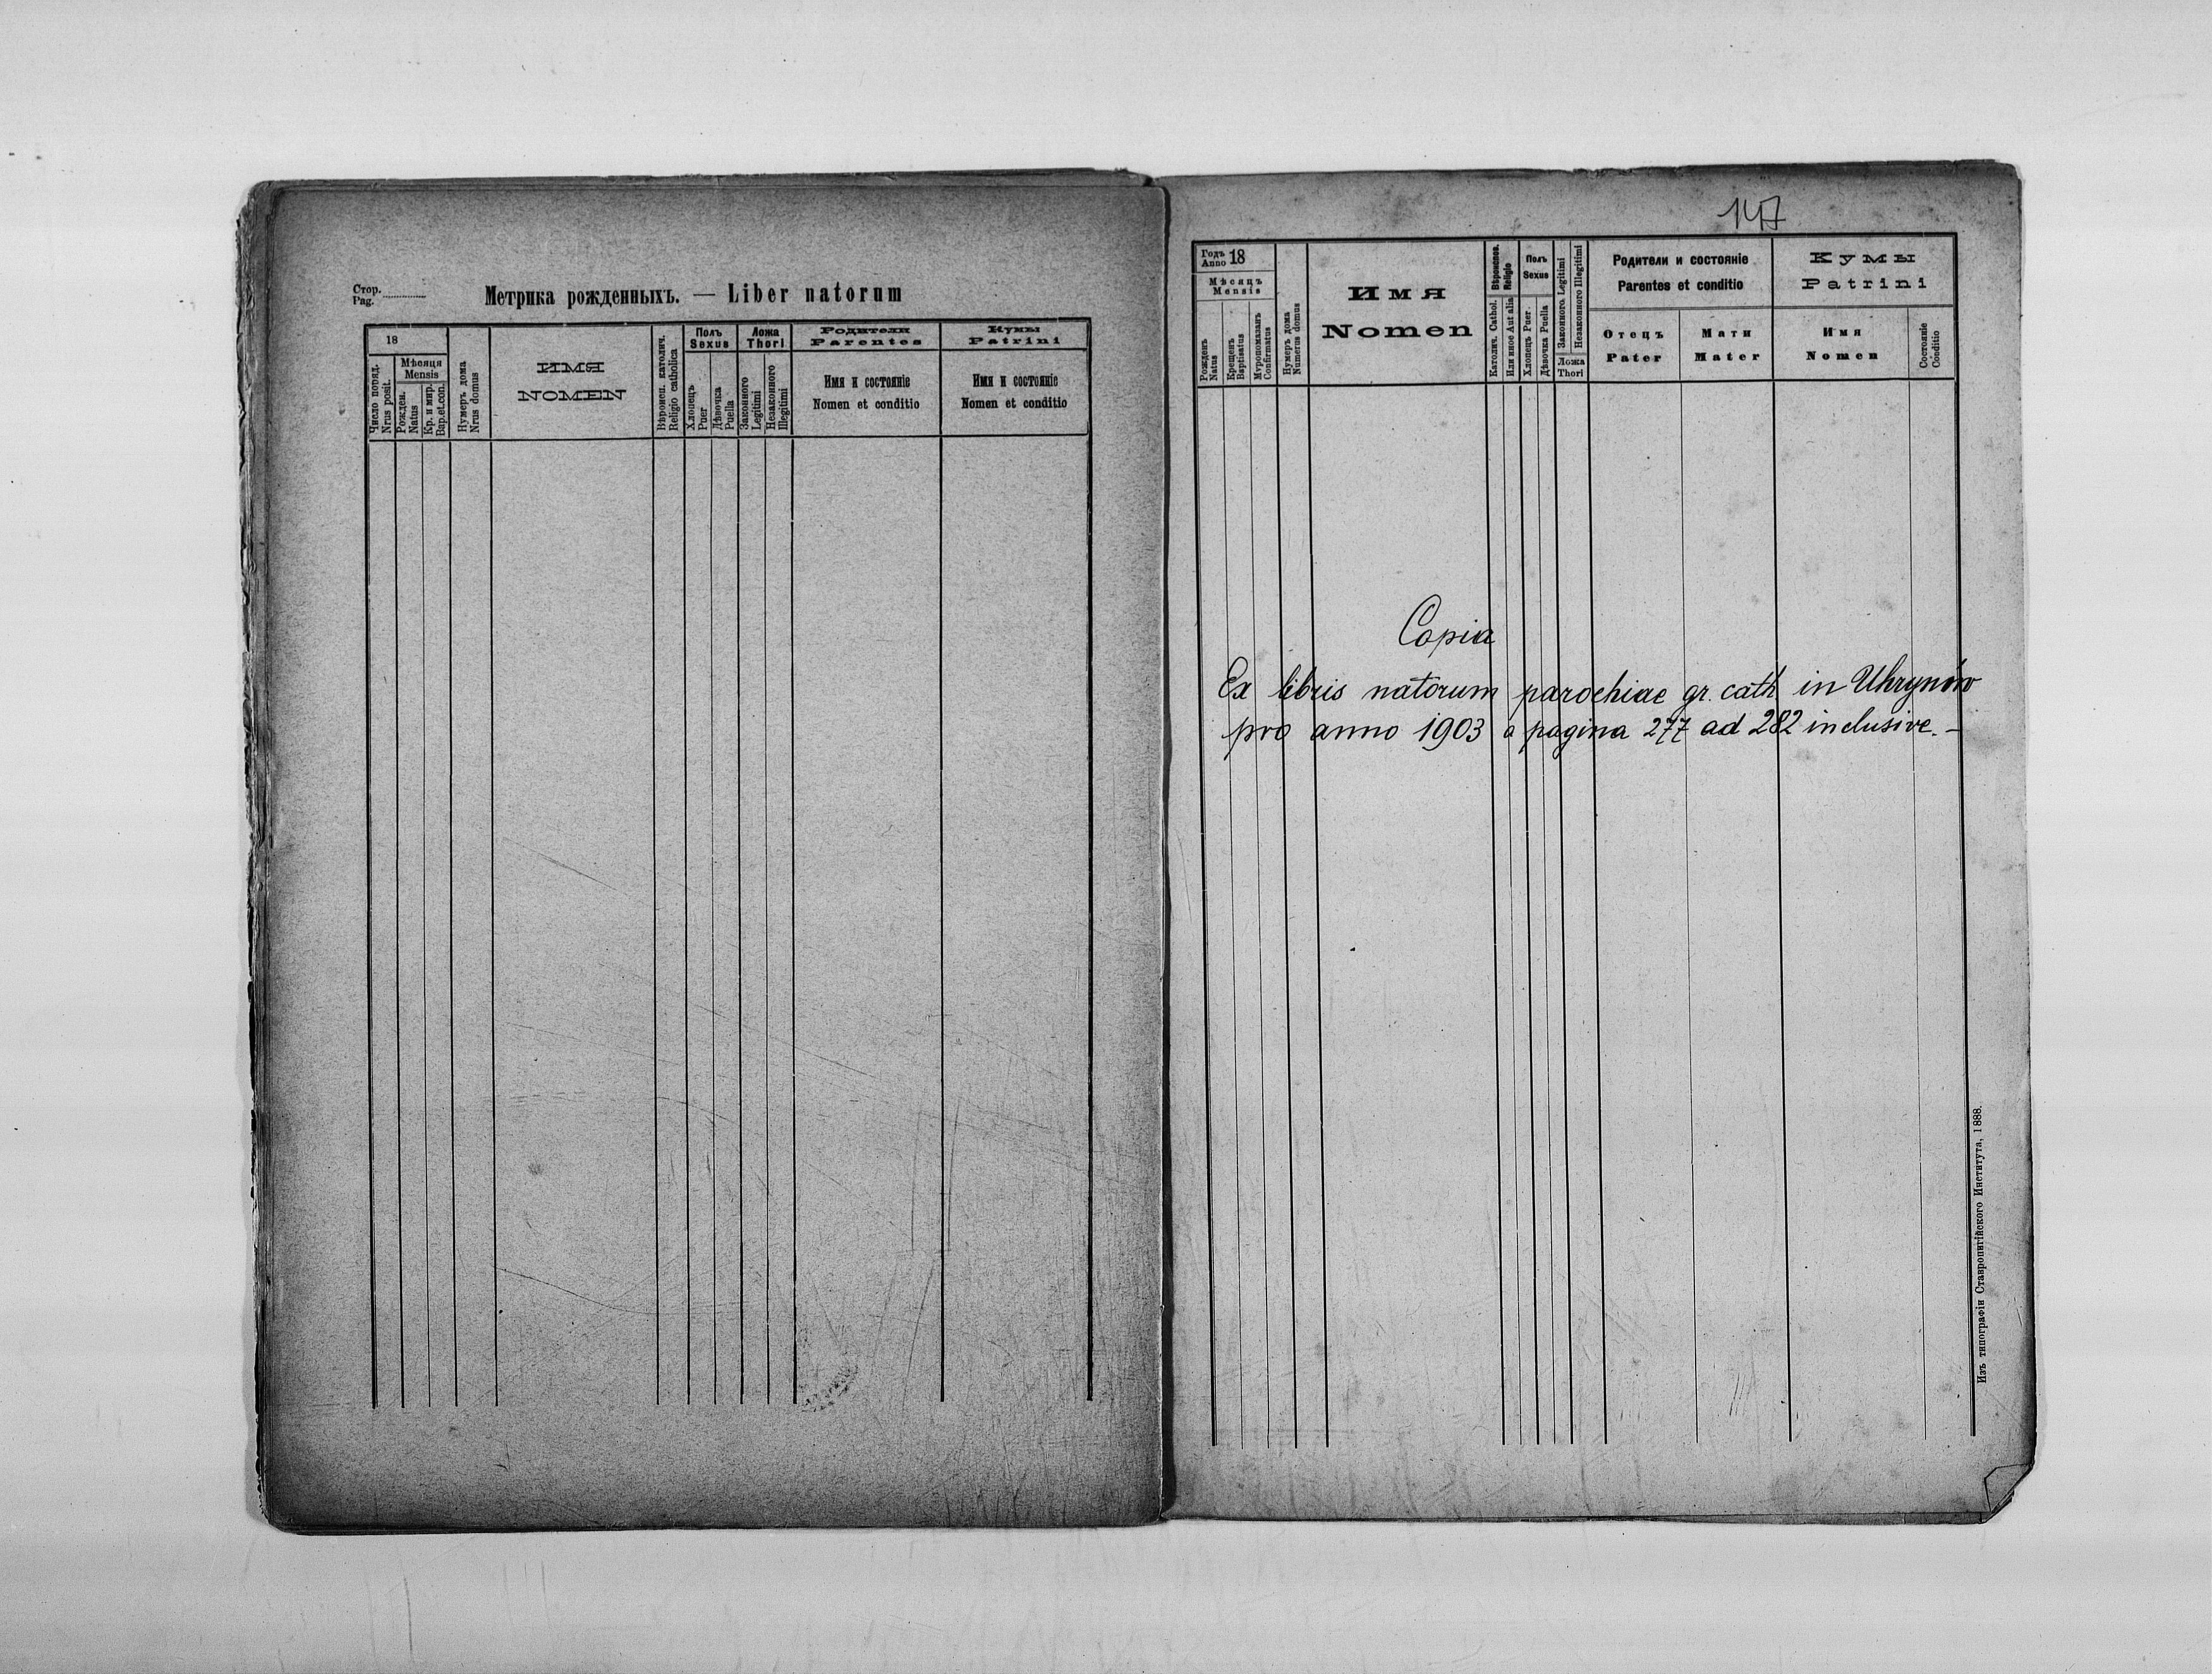 Стор.
Pag.
Метрика рожденныхъ. — Liber natorum
18
Мѣсяця
Mensis
Число поряд.
Nrus posit.
Рожден.
Natus
Кр. и мир.
Bap.et.con.
Нумеръ дома
Nrus domus
ИМЯ
NOMEN
Вѣроисп. католич.
Religio catholica
Полъ
Sexus
Хлопецъ
Puer
Дѣвочка
Puella
Ложа
Thori
Законного
Legitimi
Незаконного
Illegitimi
Родители
Parentes
Имя и состояніе
Nomen et conditio
Кумы
Patrini
Имя и состояніе
Nomen et conditio
147
Годъ
Anno 18
Мѣсяцъ
Mensis
Рожденъ
Natus
Крещенъ
Baptisatus
Мѵропомазанъ
Confirmatus
Нумеръ дома
Numerus domus
Имя
Nomen
Вѣроиспов.
Religio
Католич. Cathol.
Или иное Aut alia
Полъ
Sexus
Хлопецъ Puer.
Дѣвочка Puella
Законного. Legitimi
Незаконного Illegitimi
Ложа
Thori
Родители и состояніе
Parentes et conditio
Отецъ
Pater
Мати
Mater
Кумы
Patrini
Имя
Nomen
Состояніе
Conditio
Copia
Ex libris natorum parochiae gr. cath in Uhrynów
pro anno 1903 a pagina 277 ad 282 inclusive. –
Изъ типографіи Ставропигійского Института, 1888.